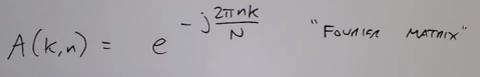 A(k,n) = e^{-j\frac{2πnk}{N}} "FOURIER MATRIX"